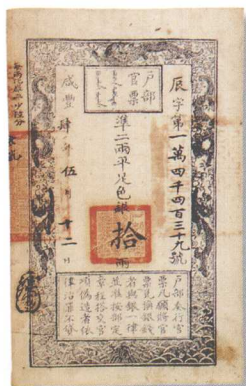 户部
官票
辰字第一萬四千四百三十九號
準二兩平足色銀
拾
兩
咸豐肆年伍月十二日
户部奏行官
票凡願將官
票兌換銀錢
者與銀一律
並准按部定
章程搭交官
項偽造者依
律治罪不貸